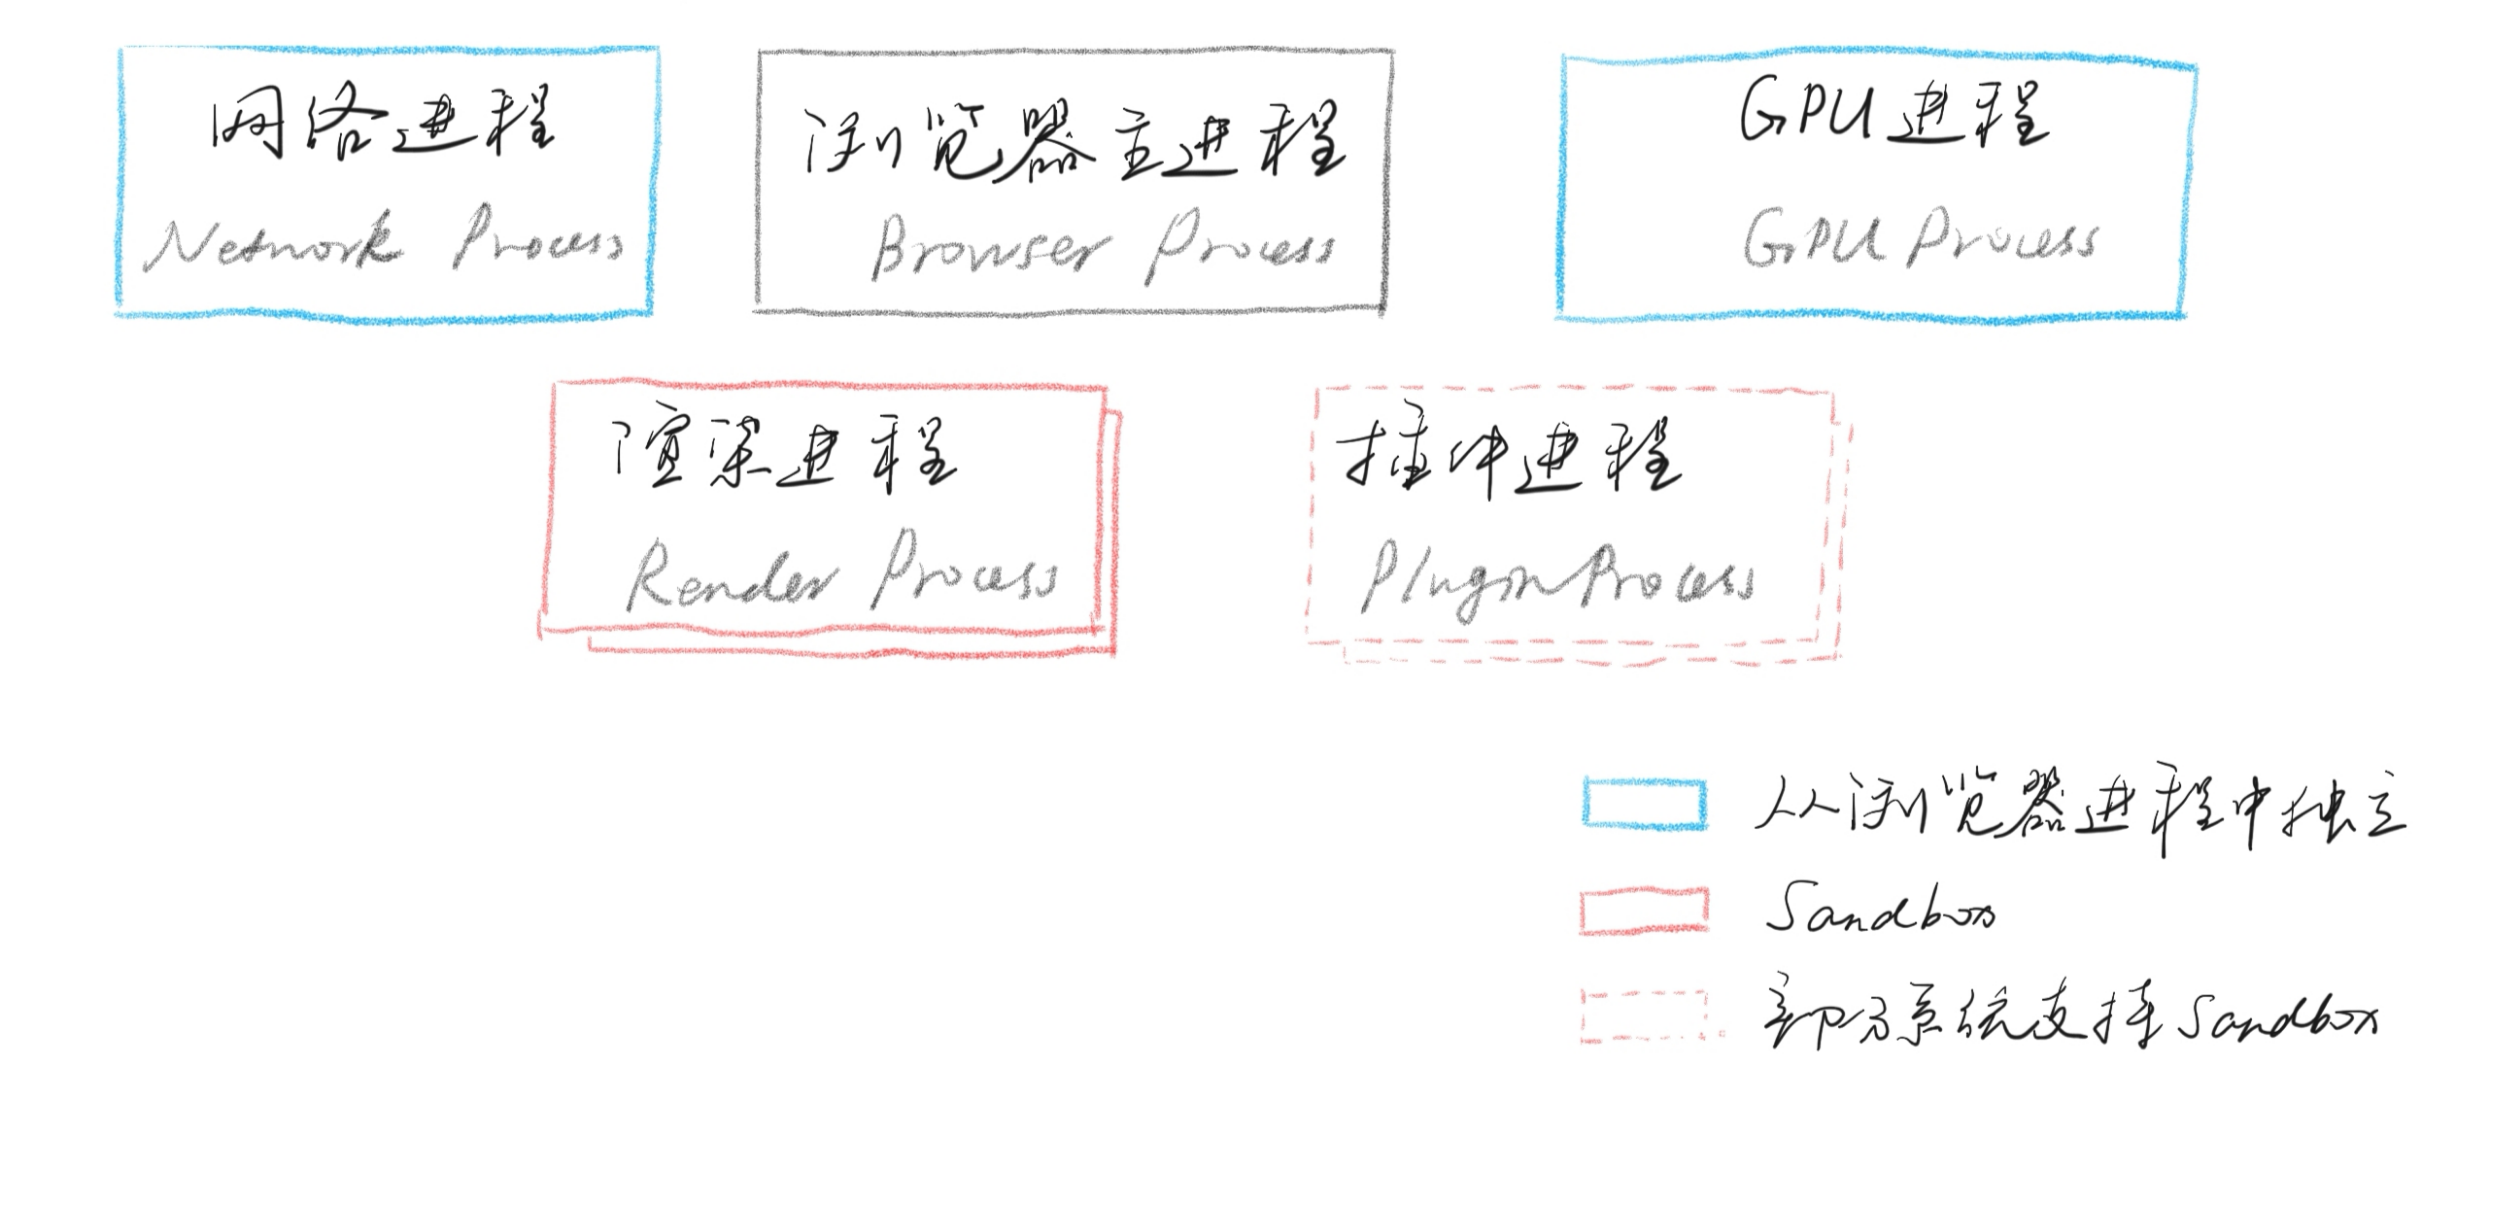 网络进程
Network Process
浏览器主进程
Browser Process
GPU进程
GPU Process
渲染进程
Render Process
插件进程
Plugin Process
从浏览器进程中独立
Sandbox
部分系统支持Sandbox